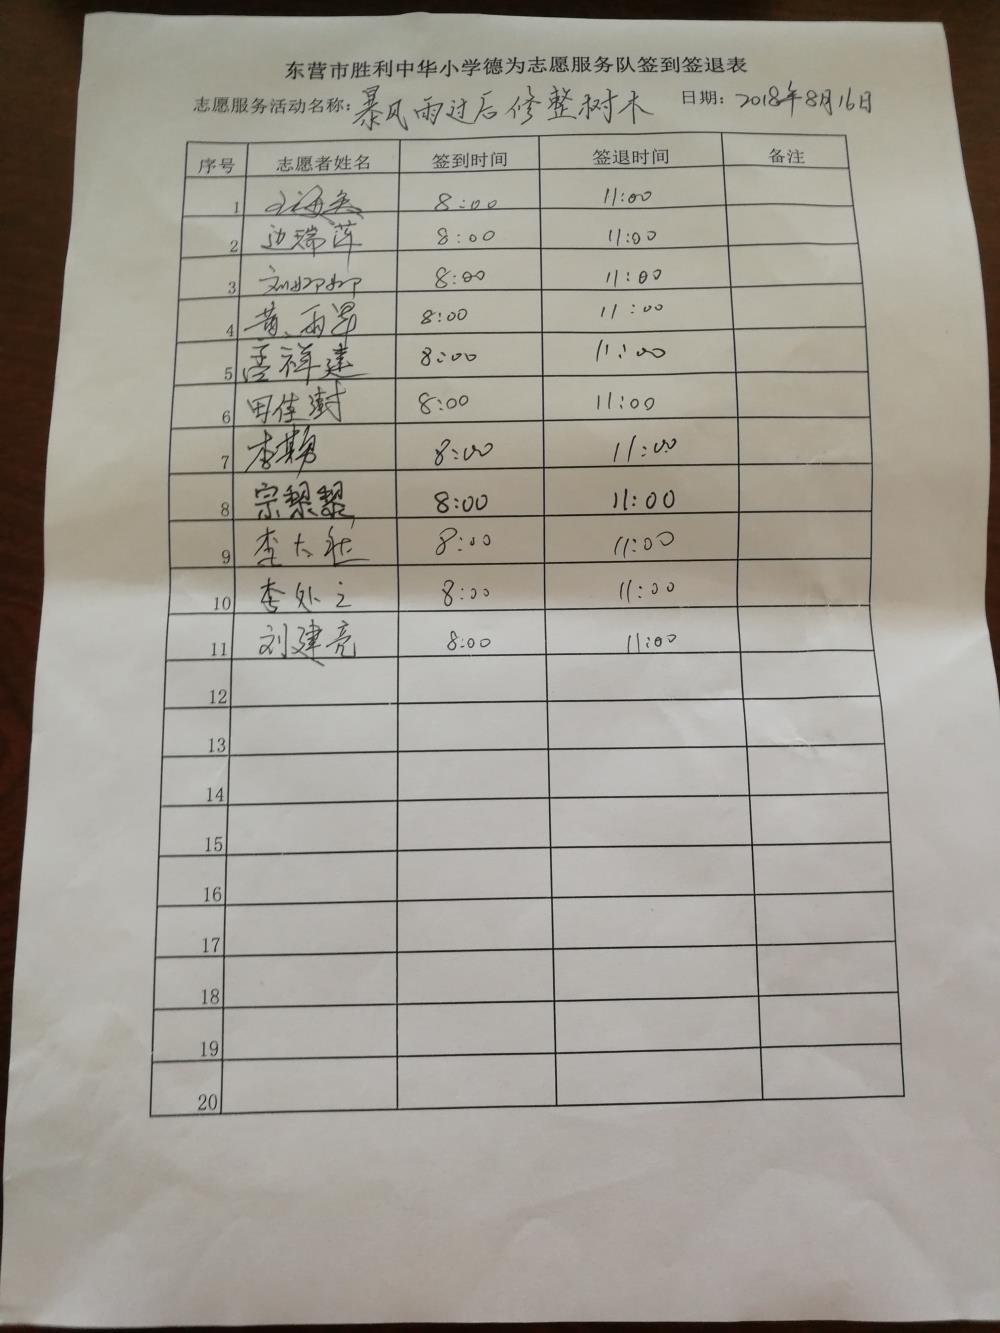 东营市胜利中华小学德为志愿服务队签到签退表
志愿服务活动名称：暴风雨过后修整树木 日期：2018年8月16日
序号 志愿者姓名 签到时间 签退时间 备注
1 8:00 11:00
2 边瑞萍 8:00 11:00
3 刘卿卿 8:00 11:00
4 黄雨 8:00 11:00
5 孟祥建 8:00 11:00
6 田佳澍 8:00 11:00
7 李 8:00 11:00
8 宗黎黎 8:00 11:00
9 李大 8:00 11:00
10 李处之 8:00 11:00
11 刘建亮 8:00 11:00
12
13
14
15
16
17
18
19
20